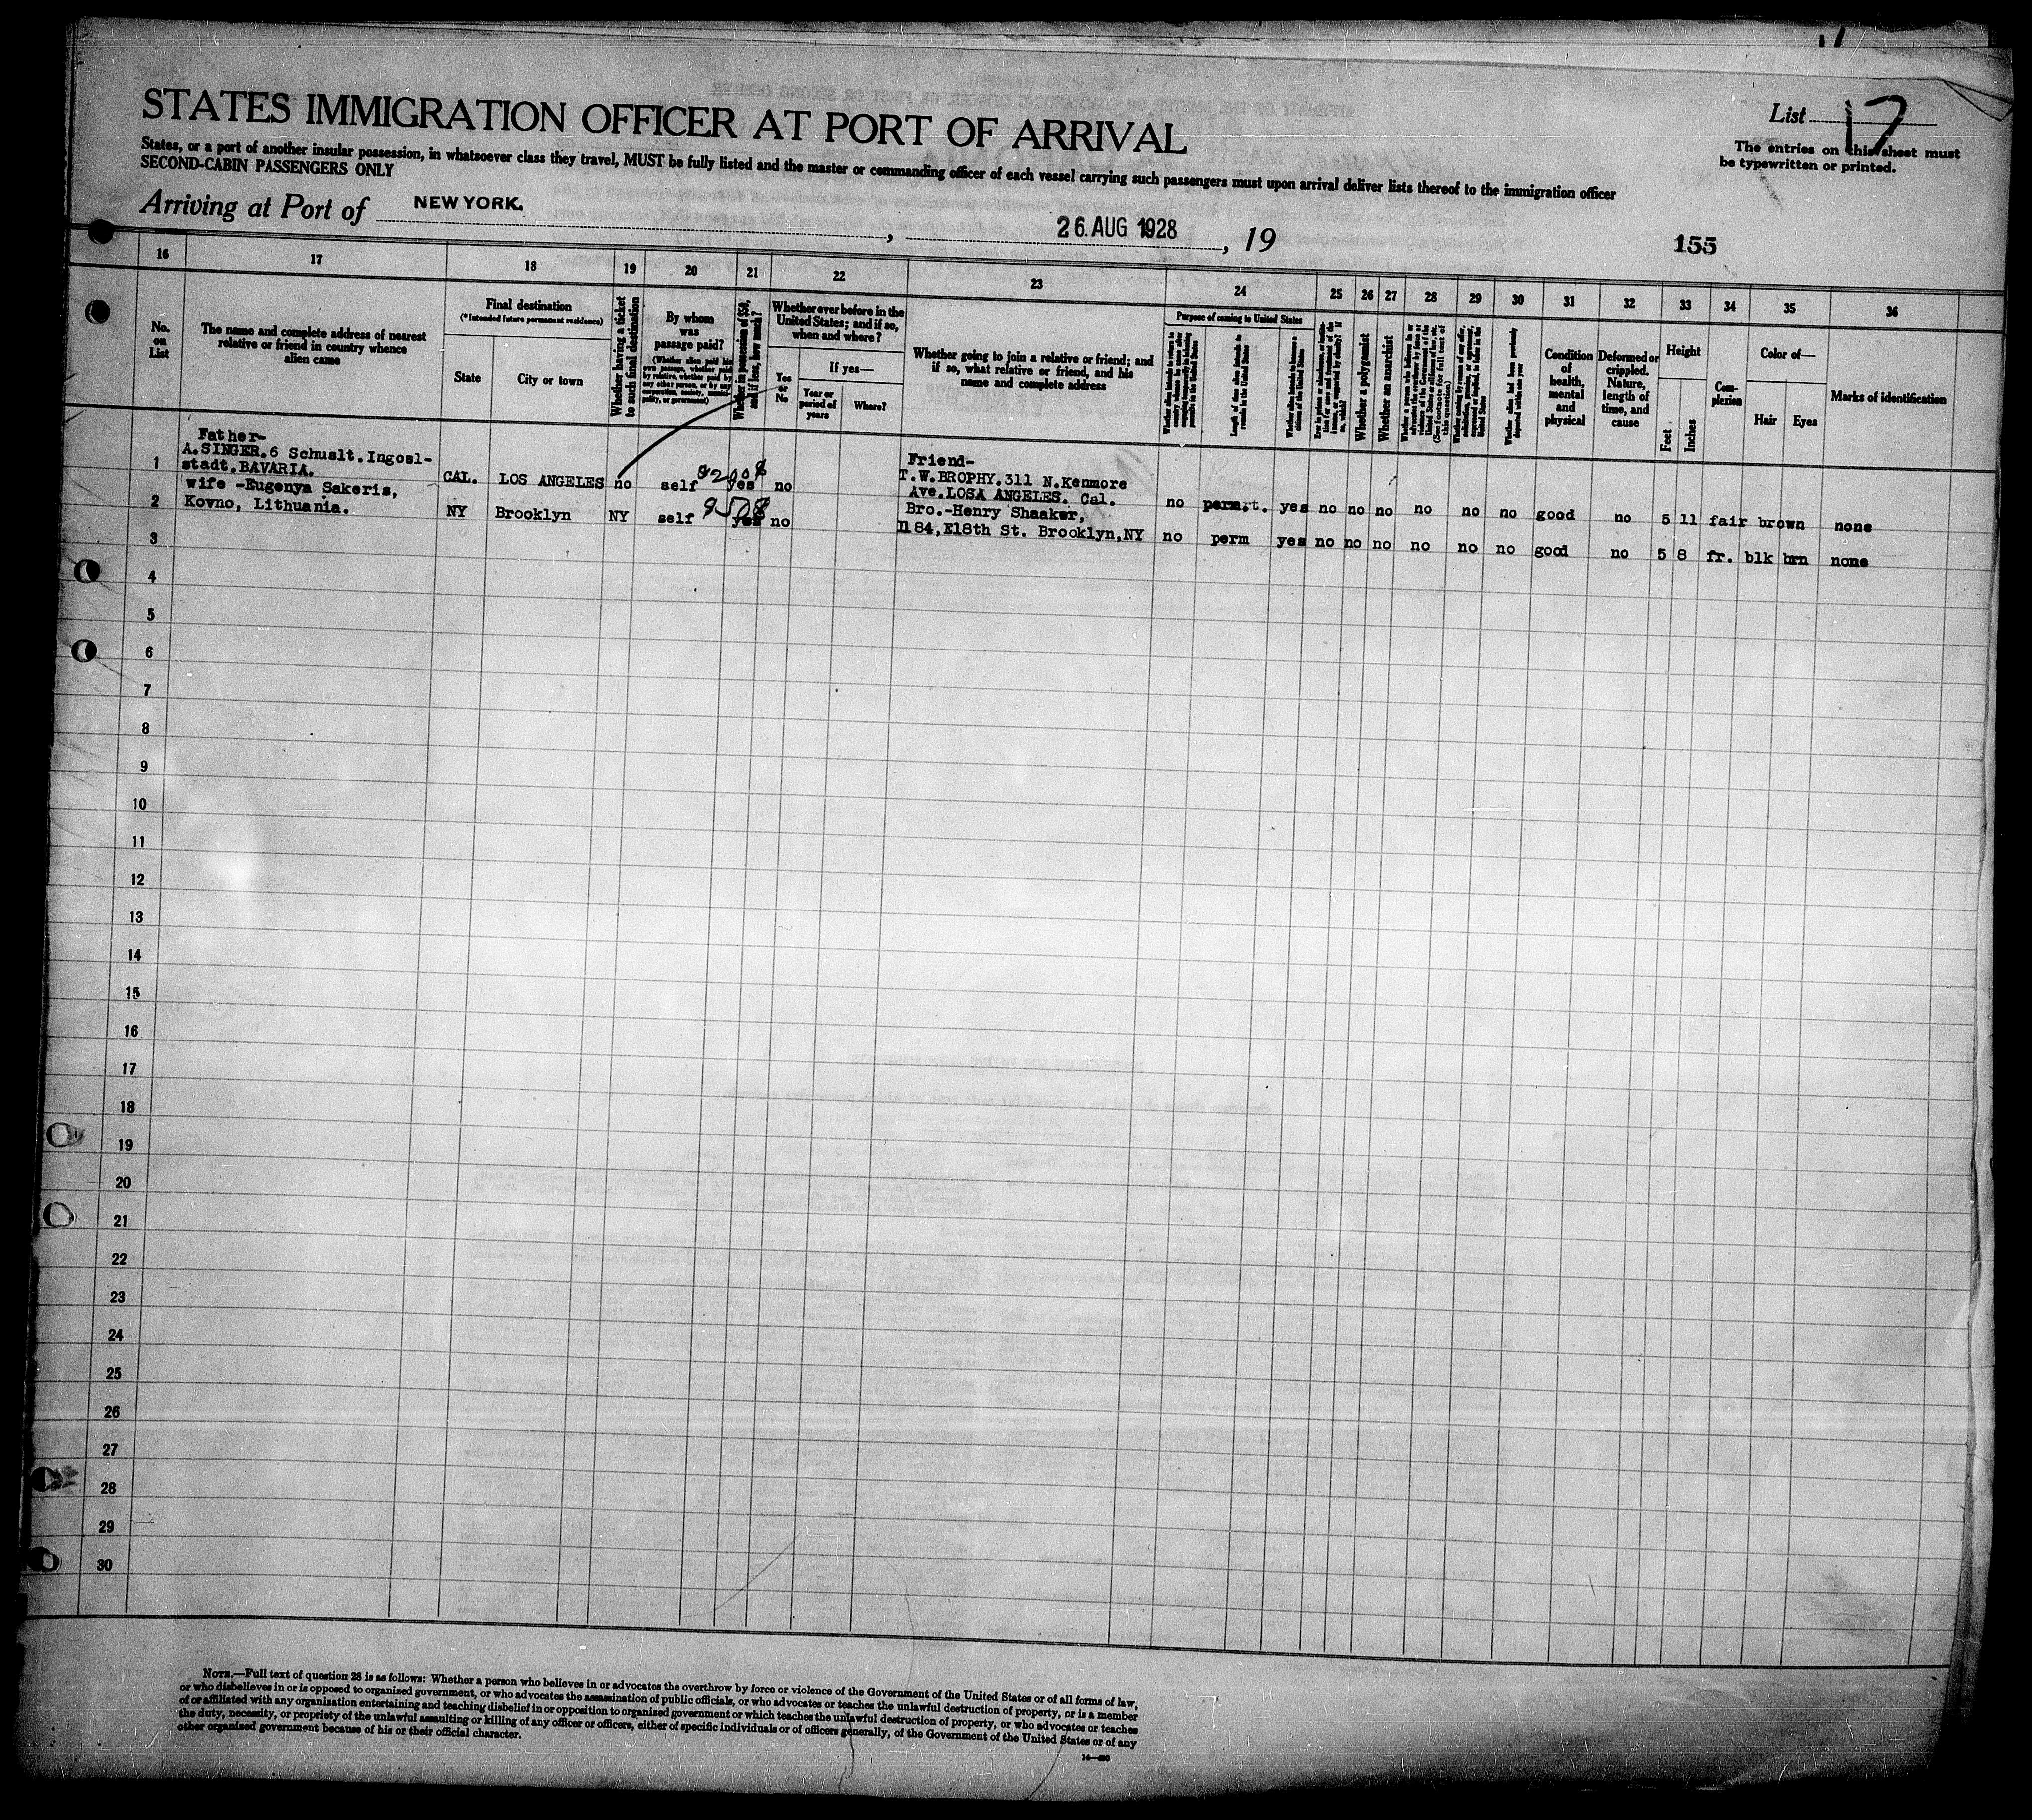 STATES IMMIGRATION OFFICER AT PORT OF ARRIVAL
List 17
The entries on this sheet must
be typewritten or printed.
States, or a port of another insular possession, in whatsoever class they travel, MUST be fully listed and the master or commanding officer of each vessel carrying such passengers must upon arrival deliver lists thereof to the immigration officer
SECOND-CABIN PASSENGERS ONLY
Arriving at Port of NEW YORK. , 26 AUG 1928 , 19
155
16 17 18 19 20 21 22 23 24 25 26 27 28 29 30 31 32 33 34 35 36
No.
on
List
The name and complete address of nearest
relative or friend in country whence
alien came
Final destination
(*Intended future permanent residence)
State
City or town
Whether having a ticket
to such final destination
By whom
was
passage paid?
(Whether alien paid his
own passage, whether paid
by relative, whether paid by
any other person, or by any
corporation, society, munici-
pality, or government)
Whether in possession of $50,
and if less, how much?
Whether ever before in the
United States; and if so,
when and where?
Yes
or
No
If yes—
Year or
period of
years
Where?
Whether going to join a relative or friend; and
if so, what relative or friend, and his
name and complete address
Purpose of coming to United States
Length of time alien intends to
remain in the United States
Whether alien intends to become a
citizen of the United States
Whether a polygamist
Whether an anarchist
(See footnote for full text of
this question)
Whether alien had been previously
deported within one year
Condition
of
health,
mental
and
physical
Deformed or
crippled.
Nature,
length of
time, and
cause
Height
Feet
Inches
Com-
plexion
Color of—
Hair
Eyes
Marks of identification
1
Father-
A.SINGER.6 Schuslt.Ingosl-
stadt.BAVARIA.
CAL. LOS ANGELES no self yes no
Friend-
T.W.BROPHY.311 N.Kenmore
Ave.LOSA ANGELES. Cal.
no yes no no no no no no good no 5 11 fair brown none
2
wife -Eugenya Sakeris,
Kovno, Lithuania.
NY Brooklyn NY self yes no
Bro.-Henry Shaaker,
84,E18th St. Brooklyn,NY
no perm yes no no no no no no good no 5 8 fr. blk brn none
3
4
5
6
7
8
9
10
11
12
13
14
15
16
17
18
19
20
21
22
23
24
25
26
27
28
29
30
NOTE.—Full text of question 28 is as follows: Whether a person who believes in or advocates the overthrow by force or violence of the Government of the United States or of all forms of law,
or who disbelieves in or is opposed to organized government, or who advocates the assassination of public officials, or who advocates or teaches the unlawful destruction of property, or is a member
of or affiliated with any organization entertaining and teaching disbelief in or opposition to organized government or which teaches the unlawful destruction of property, or who advocates or teaches
the duty, necessity, or propriety of the unlawful assaulting or killing of any officer or officers, either of specific individuals or of officers generally, of the Government of the United States or of any
other organized government because of his or their official character.